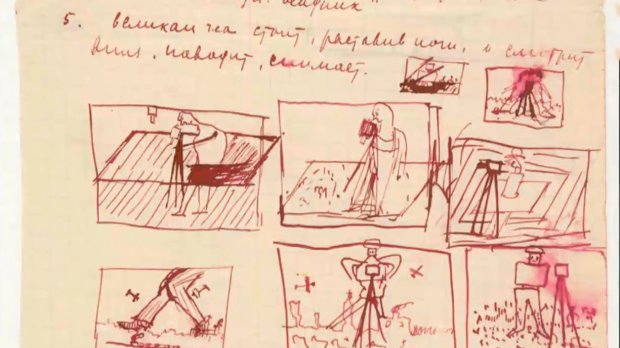 5. великан стоит, раставив ноги, и смотрит
вниз, наводит, снимает.